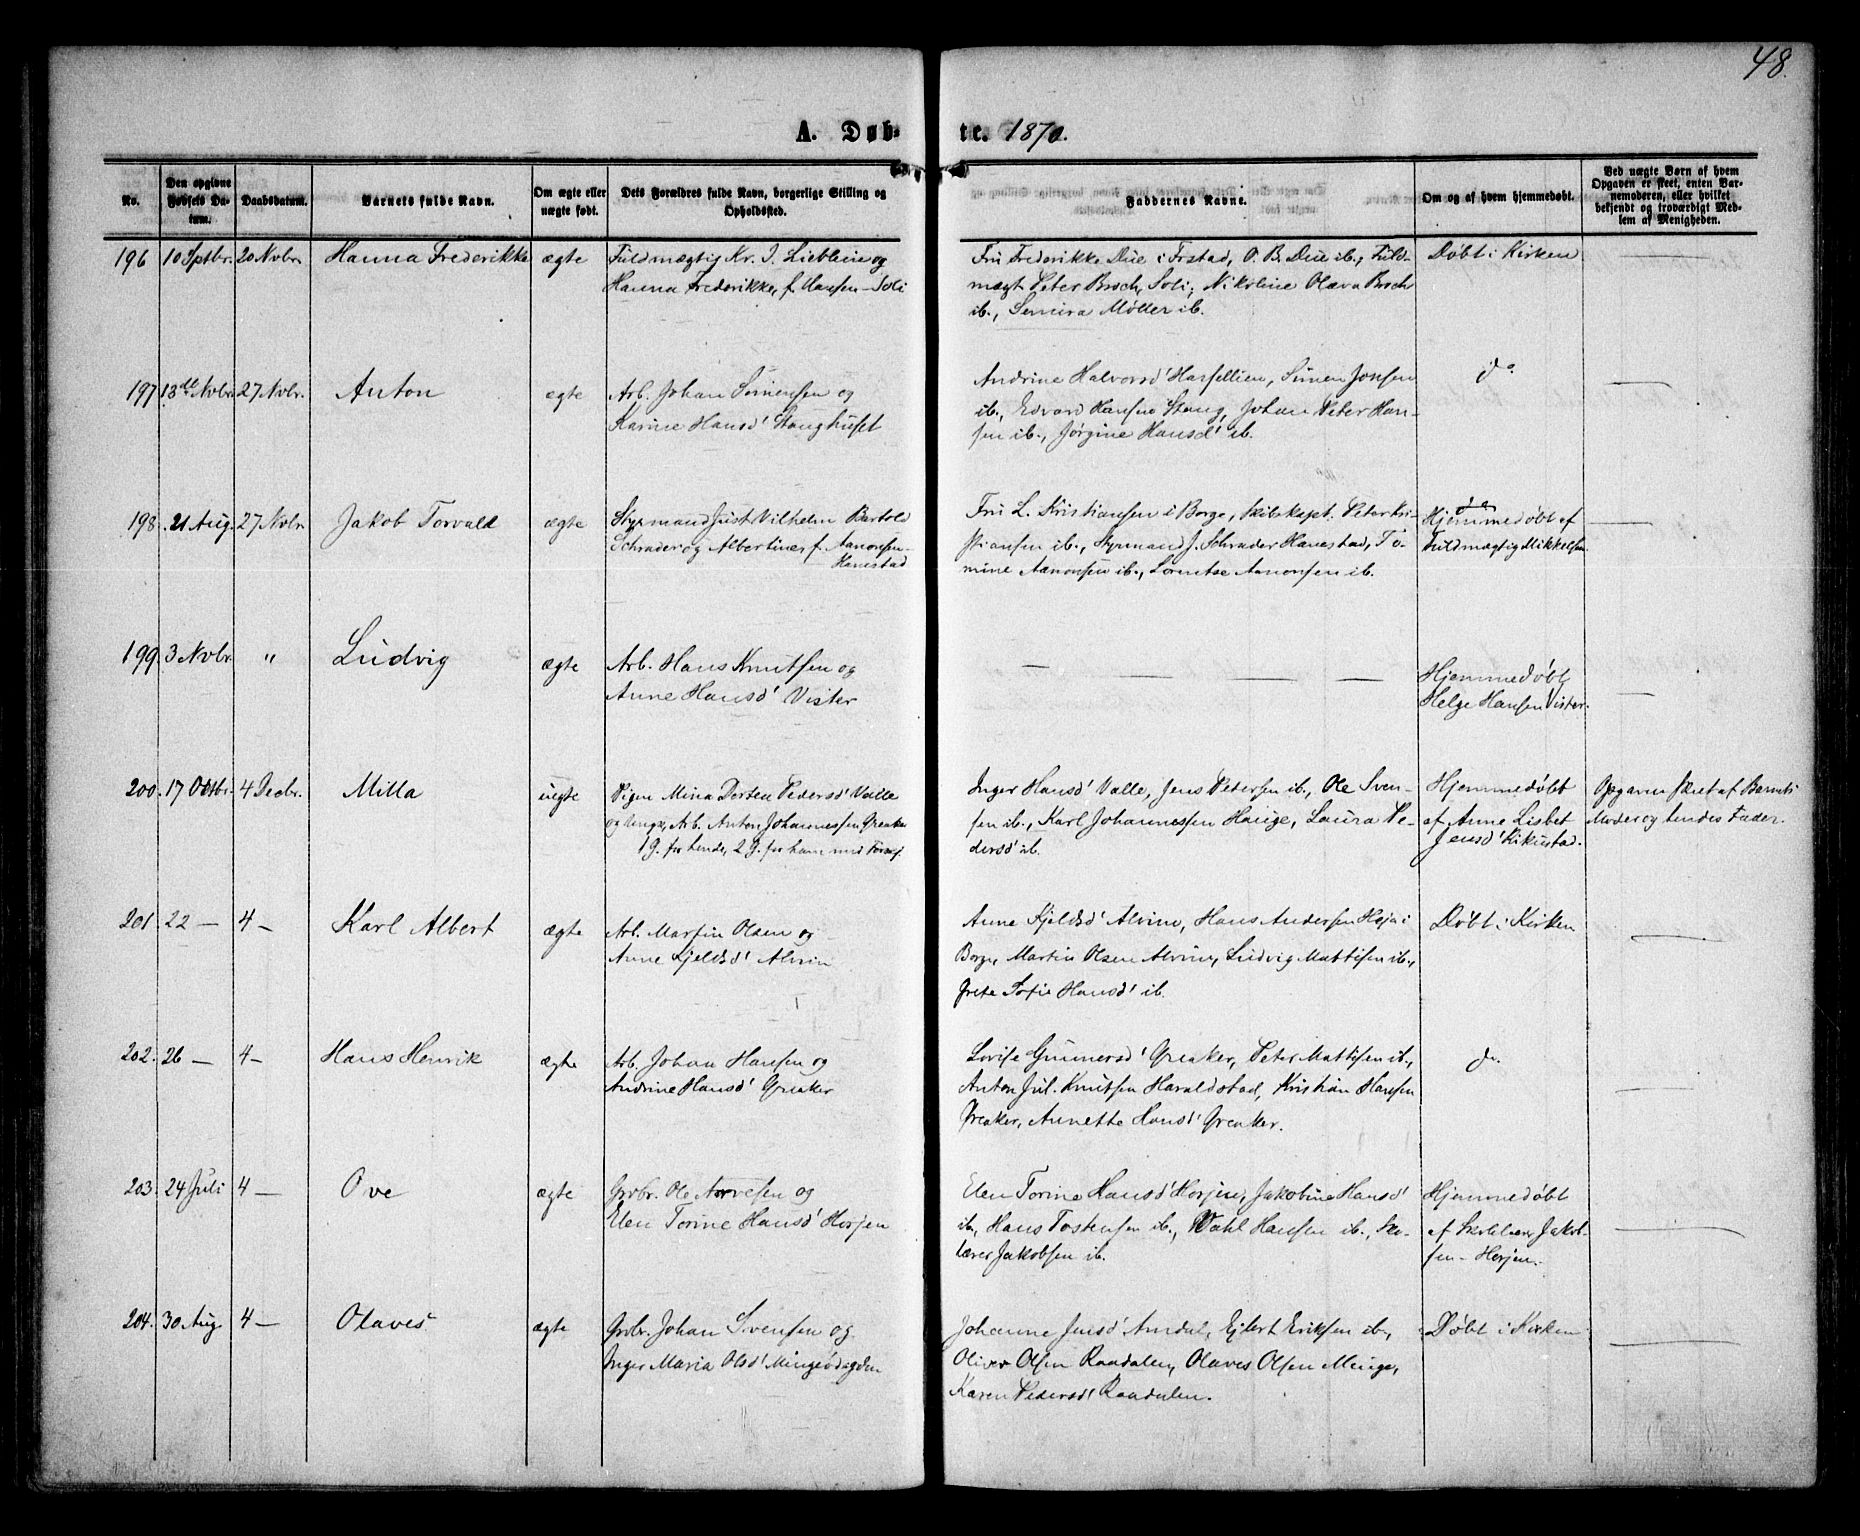 48.
A. Døbte. 1870.
No.
Den opgivne Fødsels Datum.
Daabsdatum.
Barnets fulde Navn.
Om ægte eller uægte født.
Dets Forældres fulde Navn, borgerlige Stilling og Opholdssted.
Faddernes Navne.
Om og af hvem hjemmedøbt.
Ved uægte Børn af hvem Opgaven er skeet, enten Barnemoderen, eller hvilket bekjendt og troværdigt Medlem af Menigheden.
196 10 Sptbr. 20 Novbr. Hanna Frederikke ægte
Fuldmægtig Kr. J. Lieblein og
Hanna Frederikke, f. Hansen - Soli
Fru Frederikke Due i Frstad, O. B. Due ib., Fuld-
mægt Peter Broch, Soli, Nikoline Olava Broch
ib., Semira Møller ib.
Døbt i Kirken
197 13de Novbr. 27 Novbr. Anton ægte
Arb. Johan Simensen og
Karine Hansd' Stanghuset
Andrine Halvorsd' Hasfellien, Simen Jonsen
ib., Edvard Hansen Stang, Johan Peter Han-
sen ib., Jørgine Hansd' ib.
do
198 21 Aug. 27 Novbr. Jakob Torvald ægte
Styrmand Just Vilhelm Bartold
Schrader og Albertine f. Aanonsen -
Hanestad
Fru L. Kristiansen i Borge, Skibskapt. Peter Kri-
stiansen ib., Styrmand J. Schrader Hanestad, To-
mine Aanonsen ib., Lorentse Aanonsen ib.
Hjemmedøbt af
Fuldmægtig Mikkelsen
199. 3 Novbr. " Ludvig ægte
Arb. Hans Knutsen og
Anne Hansd' Vister
Hjemmedøbt
Helge Hansen Vister.
200. 17 Octbr. 4 Decbr. Milla uægte
Pigen Mina Dortea Pedersd' Valle
og Ungk. Arb. Anton Johannessen Greaker
1 G. for hende, 2 G. for ham med
Inger Hansd' Valle, Jens Petersen ib., Ole Sven-
sen ib., Karl Johannessen Hauge, Laura Pe-
dersd' ib.
Hjemmedøbt
af Anne Lisbet
Jensd' Kikustad.
Opgaven skeet af Barnets
Moder og hendes Fader.
201. 22 — 4 — Karl Albert ægte
Arb. Martin Olsen og
Anne Kjeldsd' Alvim
Anne Kjeldsd' Alvim, Hans Andersen Høja i
Borge, Martin Olsen Alvim, Ludvig Mattisen ib.,
Grete Sofie Hansd' ib.
Døbt i Kirken
202. 26 — 4 — Hans Henrik ægte
Arb. Johan Hansen og
Andrine Hansd' Greaker
Lovise Gunnersd' Greaker, Peter Mattisen ib.,
Anton Jul. Knutsen Haraldstad, Kristian Hansen
Greaker, Annette Hansd' Greaker.
do
203. 24 Juli 4 — Ove ægte
Grbr. Ole Arvesen og
Elen Torine Hansd' Horjen
Elen Torine Hansd' Horjen, Jakobine Hansd'
ib., Hans Tostensen ib., Wahl Hansen ib., Sko-
lærer Jakobsen ib.
Hjemmedøbt
af Skolelærer Jakob-
sen - Horjen.
204. 30 Aug. 4 — Olaves ægte
Grbr. Johan Svensen og
Inger Maria Olsd' Mingeødegden
Johanne Jensd' Amdal, Ejlert Eriksen ib.,
Oliver Olsen Raadalen, Olaves Olsen Minge,
Karen Pedersd' Raadalen.
Døbt i Kirken